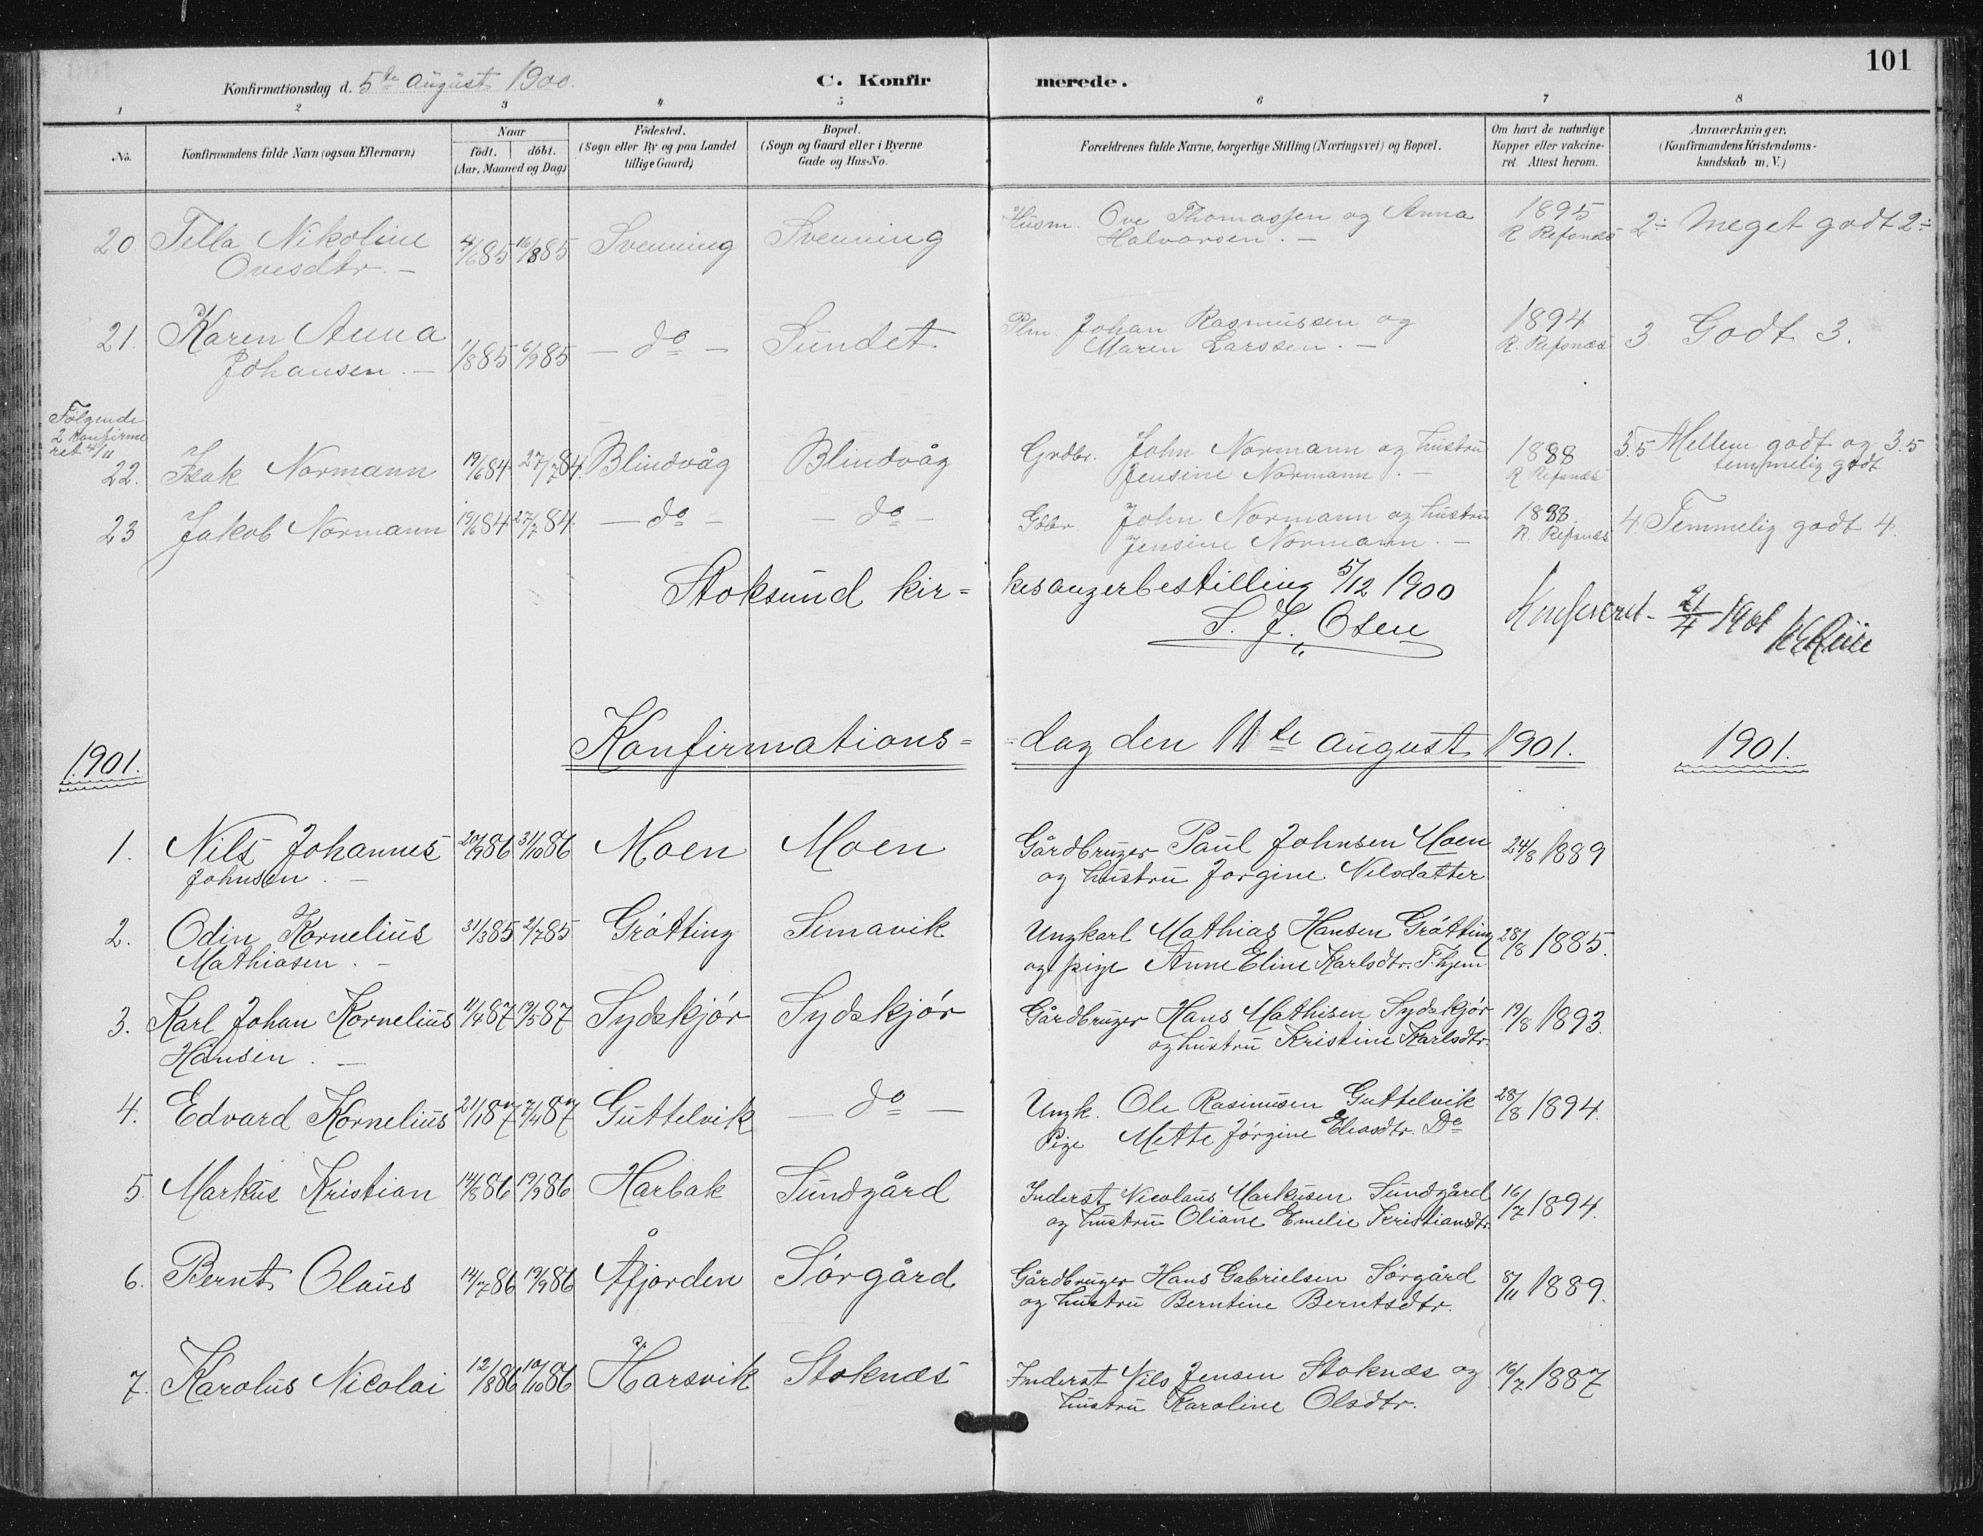 101
Konfirmationsdag d. 5te August 1900.
C. Konfirmerede.
1 2 3 4 5 6 7 8
No.
Konfirmandens fulde Navn (ogsaa Efternavn)
Naar
födt. döbt.
(Aar, Maaned og Dag)
Födested.
(Sogn eller By og paa Landet
tillige Gaard)
Bopæl.
(Sogn og Gaard eller i Byerne
Gade og Hus-No.
Forældrenes fulde Navne, borgerlige Stilling (Næringsvei) og Bopæl.
Om havt de naturlige
Kopper eller vakcine-
ret. Attest herom.
Anmærkninger.
(Konfirmandens Kristendoms-
kundskab m. V.)
20. Tella Nikoline 4/6 85 16/8 85 Svenning Svenning Husm. Ove Thomassen og Anna 1895 2÷ Meget godt 2÷
Ovesdtr. — Halvorsen. — R Refsnæs
21. Karen Anna 1/8 85 6/9 85 — do — Sundet Plm Johan Rasmussen og 1894 3 Godt 3.
Johansen. — Maren Larssen. — R. Refsnæs
Følgende
2 konfirme
ret 4/11
22. Isak Normann 19/6 84. 27/7 84. Blindvåg Blindvåg Grdbr. John Normann og hustru 1888 3.5 Mellem godt og 3.5
Jensine Normann. — R Refsnæs temmelig godt
23 Jakob Normann 19/6 84 27/7 84. — do — — do — Gbr John Normann og hustru 1888 4 Temmelig godt 4.
Jensine Normann. — R. Refsnæs
Stoksund kir= kesangerbestilling 5/12 1900
S. J. Osen
Konfereret 21/4 1901
1901. Konfirmations= =dag den 11te august 1901. 1901.
1. Nils Johannes 20/9 86 31/10 86 Moen Moen Gårdbruger Paul Johnsen Moen 24/8 1889
Johnsen. — og hustru Jørgine Nilsdatter
2. Odin Kornelius 31/3 85 2/7 85 Grøtting Simavik Ungkarl Mathias Hansen Grøtting 28/8 1885.
Mathiasen. — og pige Anne Eline Karlsdtr. F.hjem
3. Karl Johan Kornelius 11/4 87 19/5 87 Sydskjør Sydskjør Gårdbruger Hans Mathisen Sydskjør 19/8 1893.
Hansen. — og hustru Kristine Karlsdtr.
4. Edvard Kornelius 21/1 87 7/4 87 Guttelvik — do — Ungk. Ole Rasmusen Guttelvik 28/8 1894.
Pige Mette Jørgine Eliasdtr. Do
5. Markus Kristian 14/8 86 19/9 86 Harbak Sundgård Inderst Nicolaus Markusen Sundgård 16/7 1894.
og hustru Oliane Emelie Kristiansdtr.
6. Bernt Olaus 14/7 86 19/9 86 Åfjorden Sørgård Gårdbruger Hans Gabrielsen Sørgård 8/11 1889.
og hustru Berntine Berntsdtr.
7. Karolus Nicolai 12/8 86 10/10 86 Harsvik Stoknæs Inderst Nils Jensen Stoknæs og 16/7 1887
hustru Karoline Olsdtr.